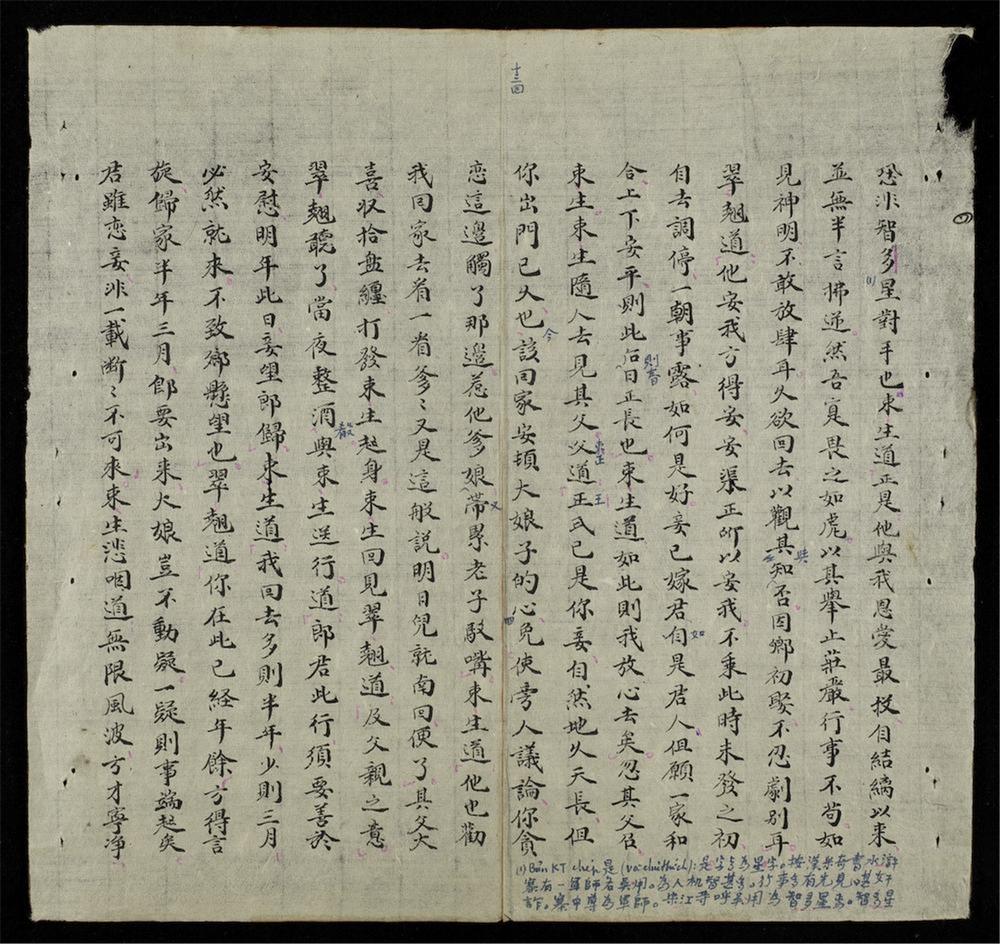 十三回
恐非智多星對手也束生道正是他與我恩愛最投自結縭以來
並無半言拂逆然吾寔畏之如虎以其舉止莊嚴行事不苟如
見神明不敢放肆耳久欲回去以觀其知否因鄉初娶不忍劇別耳
翠翹道他安我方得安安渠正所以安我不乘此時未發之初
自去調停一朝事露如何是好妾已嫁君自是君人但願一家和
合上下安平則此后日正長也束生道如此則我放心去矣忽其父召
束生束生隨人去見其父父道正式已是你妾自然地久天長但
你出門已久也該回家安頓大娘子的心免使旁人議論你貪
恋這邊觸了那邊惹他爹娘帶累老子馶嘴束生道他也勸
我回家去看一看爹〻又是這般説明日兒就南回便了其父大
喜収拾盘纏打發束生起身束生回見翠翹道及父親之意
翠翹聽了當夜整酒與束生送行道郎君此行須要善於
安慰明年此日妾望郎歸束生道我回去多則半年少則三月
必然就來不致鄉懸望也翠翹道你在此已経年餘方得言
旋歸家半年三月郎要出來大娘豈不動疑一疑則事端起矣
君雖恋妾非一載断〻不可來束生悲咽道無限風波方才寧净
(1)
則昔
共
如
今
束正
王
又
殽
(1) Bản KT chép 是 (và chú thích): 是字右為星字。按漢朱奇書水滸
寨有一軍師名吳用。為人机智甚多。行事多有先見。甚奸
詐。寨中尊為軍師。宋江等呼吳用為智多星